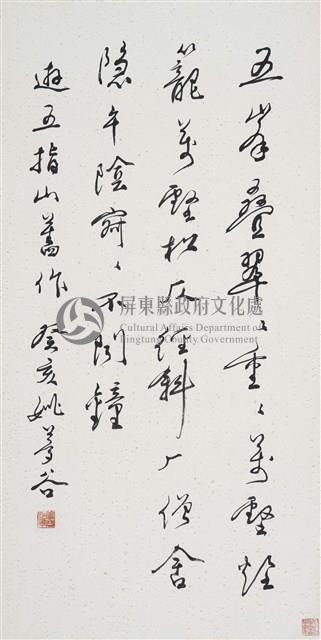 五峯疊翠〻重〻萬壑煙
籠萬壑松石徑斜〻僧舍
隱午陰寂〻不聞鐘
遊五指山舊作 癸亥姚夢谷
屏東縣政府文化處
Cultural Affairs Department of
Pingtung County Government